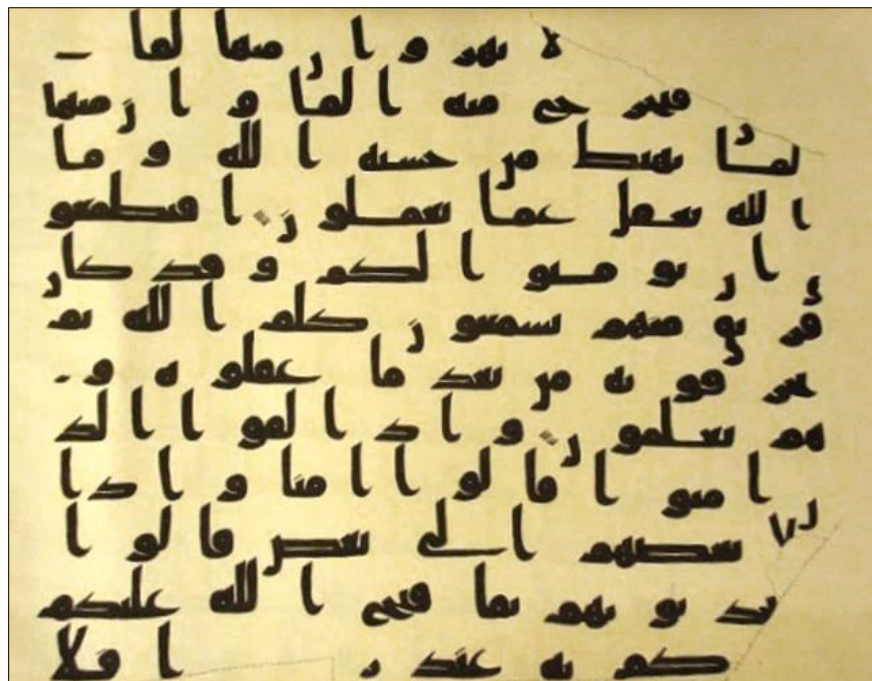 لا نهر وان منها لما
فيخرج منه الما وان منها
لما يهبط من خشيه الله وما
الله بغفل عما تعملون افتطمعو
ان يومنوا لكم وقد كان
فريق منهم يسمعون كلم الله ثم
يحرفونه من بعد ما عقلوه و
هم يعلمون واذا لقوا الذ
امنوا قالوا امنا واذا
بعضهم الى بعض قالوا
تحدثونهم بما فتح الله عليكم
كم به عند افلا